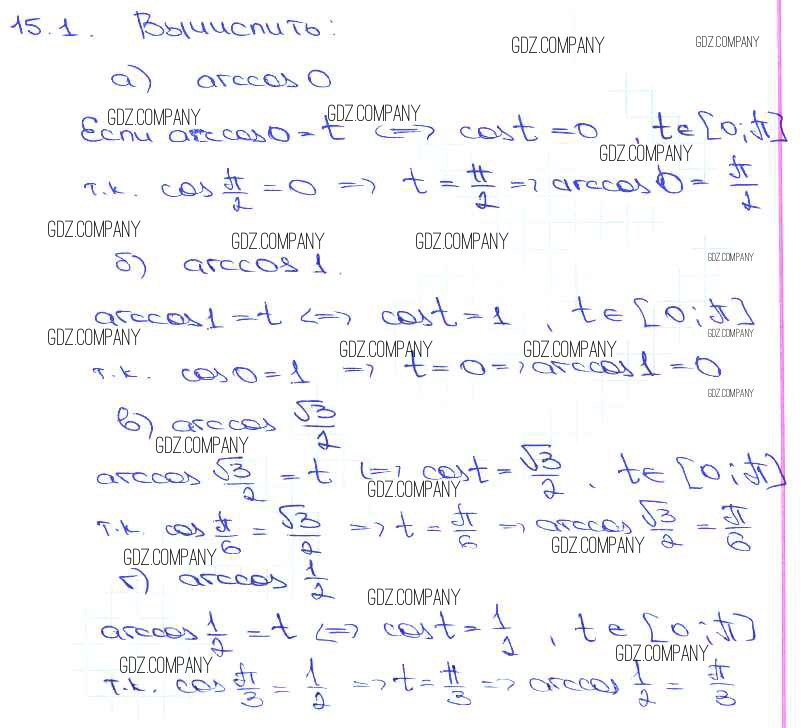 15.1. Вычислить:
GDZ.COMPANY GDZ.COMPANY
а) arccos 0
GDZ.COMPANY GDZ.COMPANY
Если arccos 0 = t <=> cos t = 0 , t ∈ [0; π]
GDZ.COMPANY
т.к. cos π/2 = 0 => t = π/2 => arccos 0 = π/2
GDZ.COMPANY GDZ.COMPANY GDZ.COMPANY
б) arccos 1.
GDZ.COMPANY
arccos 1 = t <=> cos t = 1 , t ∈ [0; π]
GDZ.COMPANY GDZ.COMPANY
GDZ.COMPANY GDZ.COMPANY
т.к. cos 0 = 1 => t = 0 => arccos 1 = 0
GDZ.COMPANY
в) arccos √3/2
GDZ.COMPANY
arccos √3/2 = t <=> cos t = √3/2 , t ∈ [0; π]
GDZ.COMPANY
т.к. cos π/6 = √3/2 => t = π/6 => arccos √3/2 = π/6
GDZ.COMPANY GDZ.COMPANY
г) arccos 1/2
GDZ.COMPANY
arccos 1/2 = t <=> cos t = 1/2 , t ∈ [0; π]
GDZ.COMPANY GDZ.COMPANY
т.к. cos π/3 = 1/2 => t = π/3 => arccos 1/2 = π/3